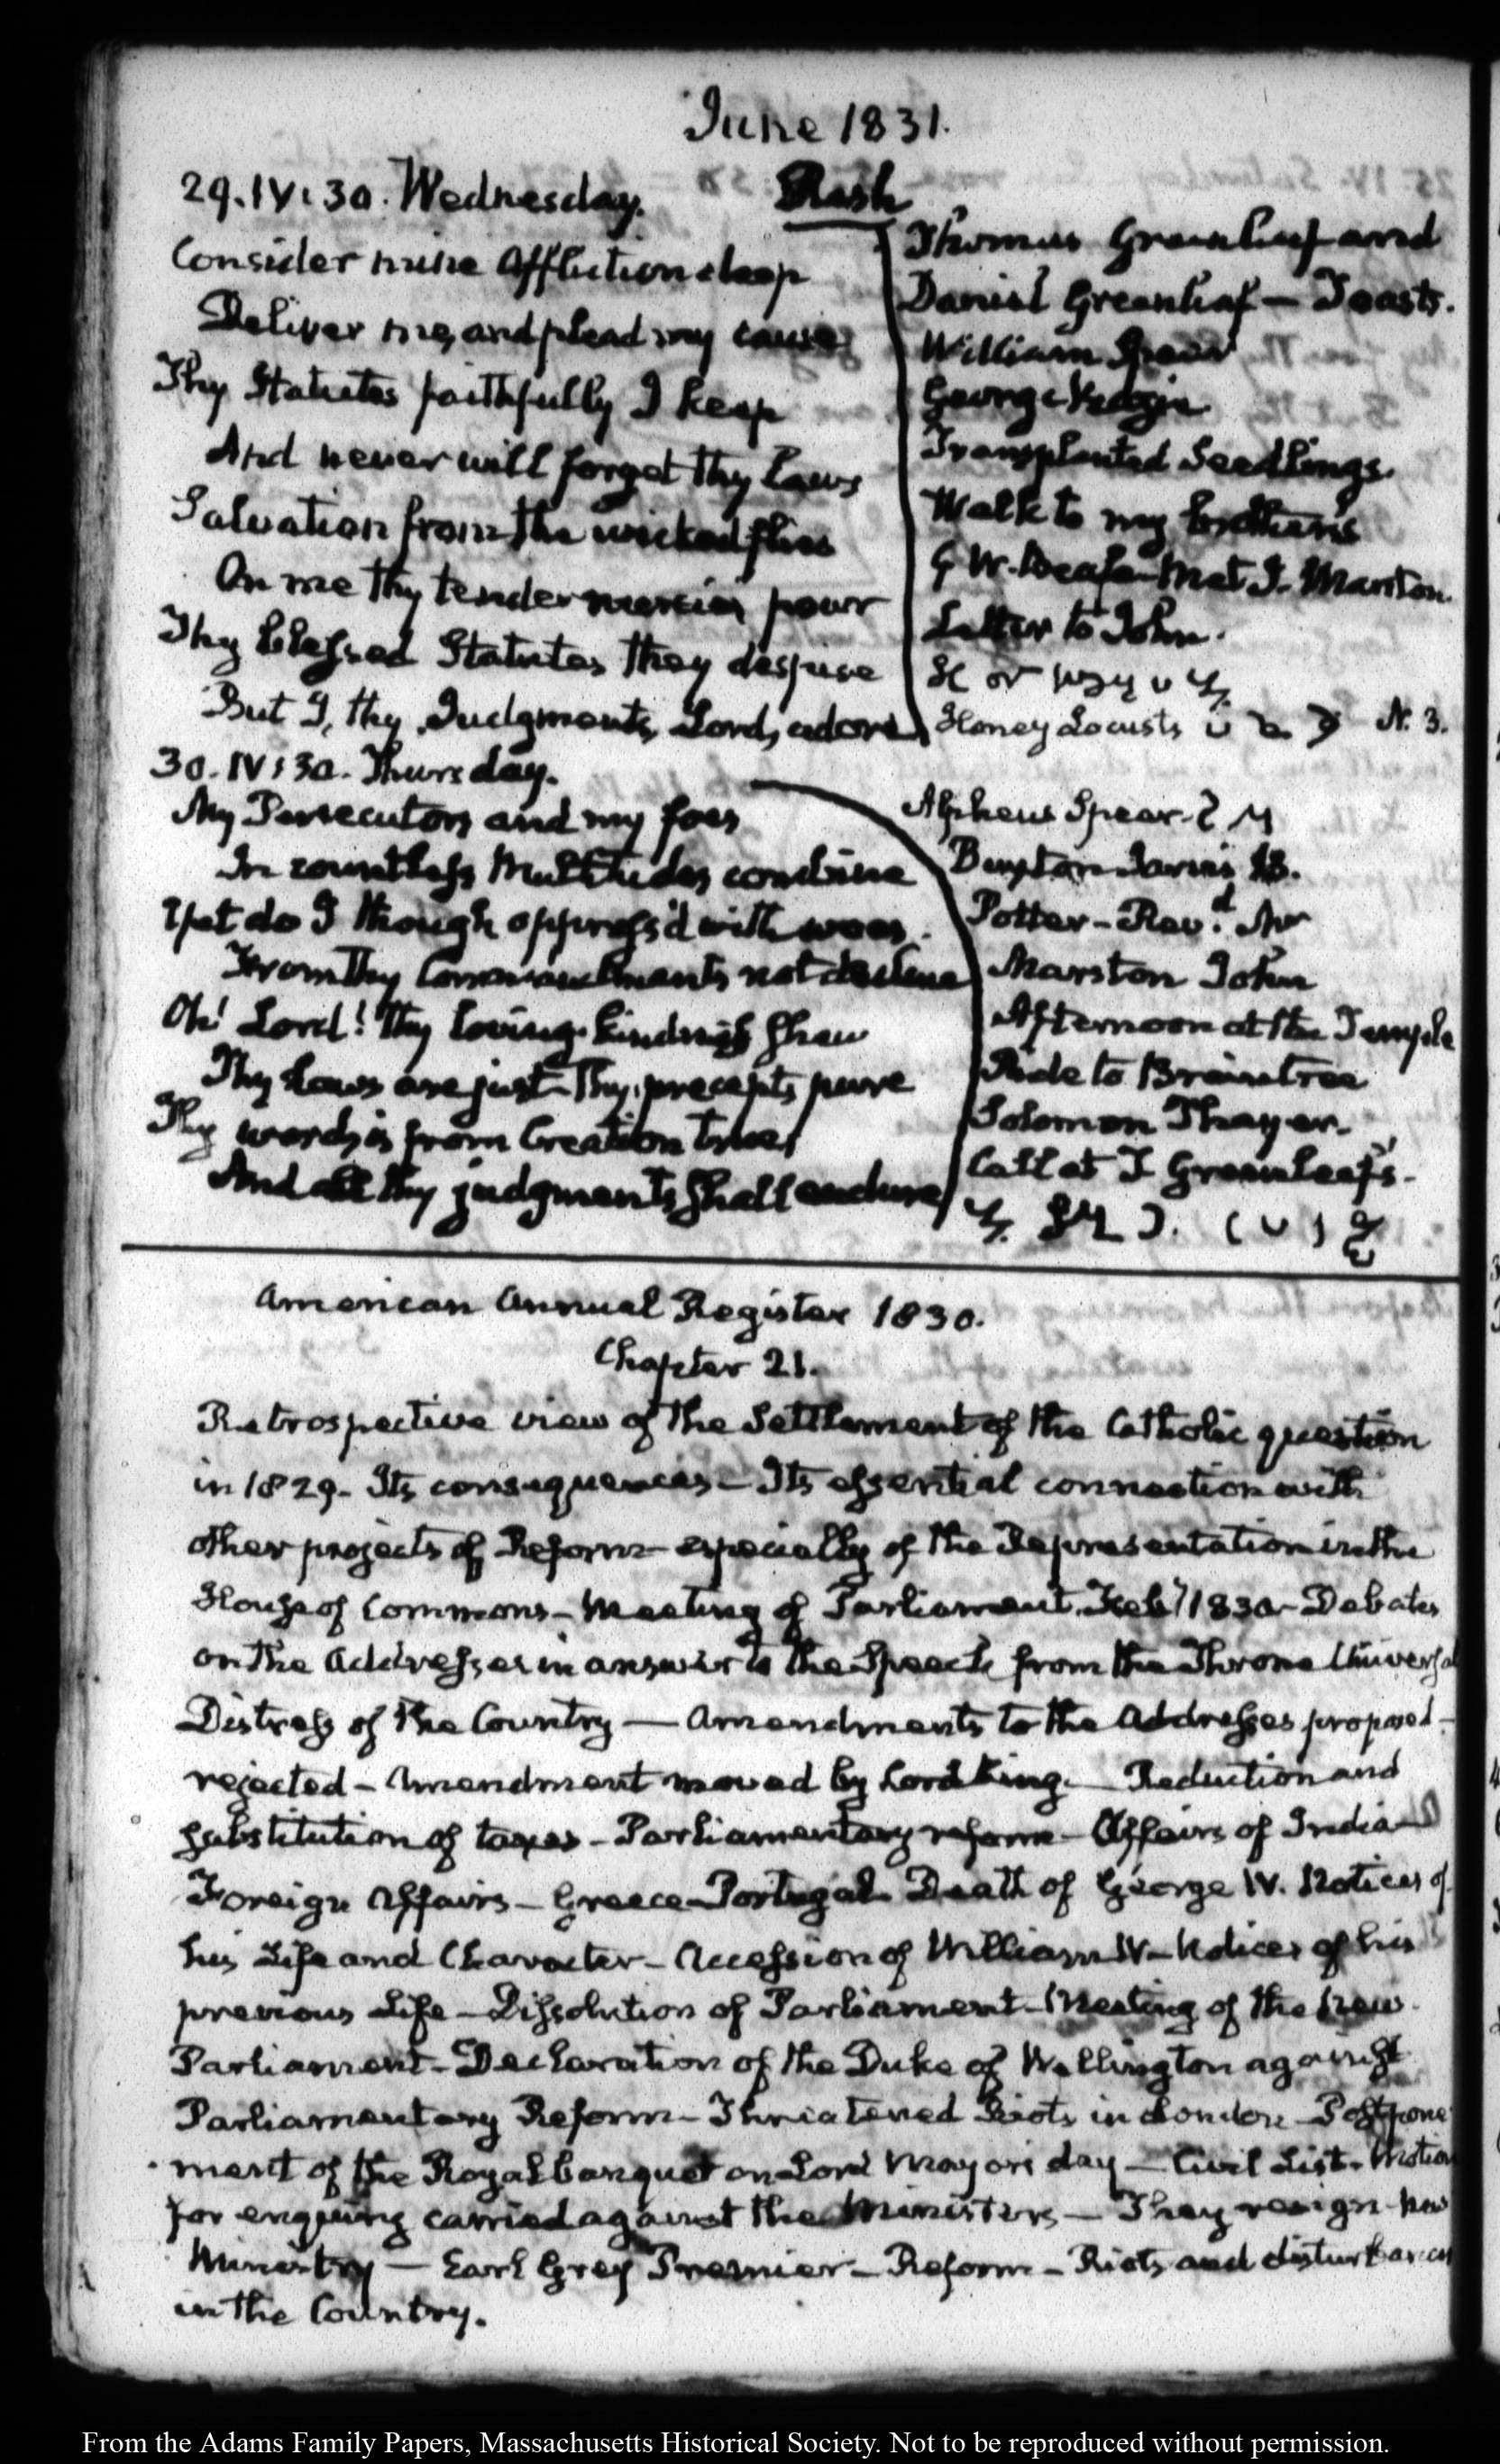 June 1831.
29. IV:30. Wednesday. Rash
Consider mine Affliction deep
Deliver me, and plead my cause
Thy Statutes faithfully I keep
And never will forget thy Laws
Salvation from the wicked flies
On me thy tender mercies pour
Thy blessed Statutes they despise
But I, thy Judgments, Lord, adore
Thomas Greenleaf and
Daniel Greenleaf — Toasts.
William Spear
George
Transplanted Seedlings.
Walk to my brother's
G W. Beale Met J. Marston.
Letter to John.
Honey Locusts N. 3.
30. IV:30. Thursday.
My Persecutors and my foes
In countless Multitudes combine
Yet do I though oppress'd with woes
From thy Commandments not decline
Oh! Lord! thy loving-kindness shew
Thy Laws are just Thy precepts pure
Thy word, is from Creation true
And all thy judgments shall endure
Alpheus Spear.
Buxton Jarvis B.
Potter — Revd. Mr
Marston John
Afternoon at the Temple
Ride to Braintree
Solomon Thayer.
Call at T Greenleaf's.
American Annual Register 1830.
Chapter 21.
Retrospective view of the Settlement of the Catholic question
in 1829 — Its consequences — Its essential connection with
other projects of Reform especially of the Representation in the
House of Commons — Meeting of Parliament. Feby 1830 — Debates
on the Addresses in answer to the Speech from the Throne Universal
Distress of the Country — Amendments to the Addresses proposed —
rejected — Amendment moved by Lord King — Reduction and
substitution of taxes — Parliamentary reform — Affairs of India
Foreign Affairs — Greece — Portugal Death of George IV. Notices of
his Life and Character — Accession of William IV — Notices of his
previous Life — Dissolution of Parliament — Meeting of the new
Parliament — Declaration of the Duke of Wellington against
Parliamentary Reform — Threatened Riots in London — Postpone
ment of the Royal banquet on Lord Mayors day — Civil List. Motion
for enquiry carried against the Ministers — They resign — New
Ministry — Earl Grey Premier — Reform — Riots and disturbances
in the Country.
From the Adams Family Papers, Massachusetts Historical Society. Not to be reproduced without permission.